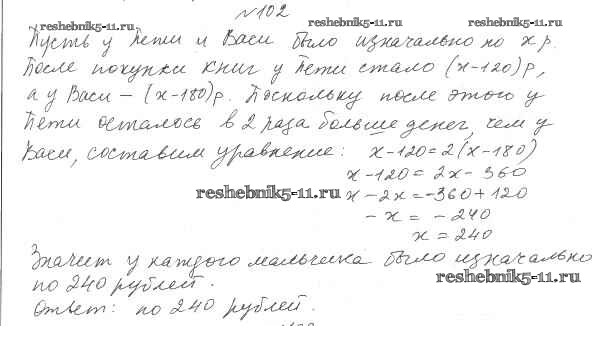 №102
reshebnik5-11.ru reshebnik5-11.ru reshebnik5-11.ru
Пусть у Пети и Васи было изначально по х р.
После покупки книг у Пети стало (х-120)р,
а у Васи - (х-180)р. Поскольку после этого у
Пети осталось в 2 раза больше денег, чем у
Васи, составим уравнение: х-120=2(х-180)
х-120=2х-360
reshebnik5-11.ru х-2х=-360+120
-х=-240
х=240
Значит у каждого мальчика было изначально
по 240 рублей. reshebnik5-11.ru
Ответ: по 240 рублей.